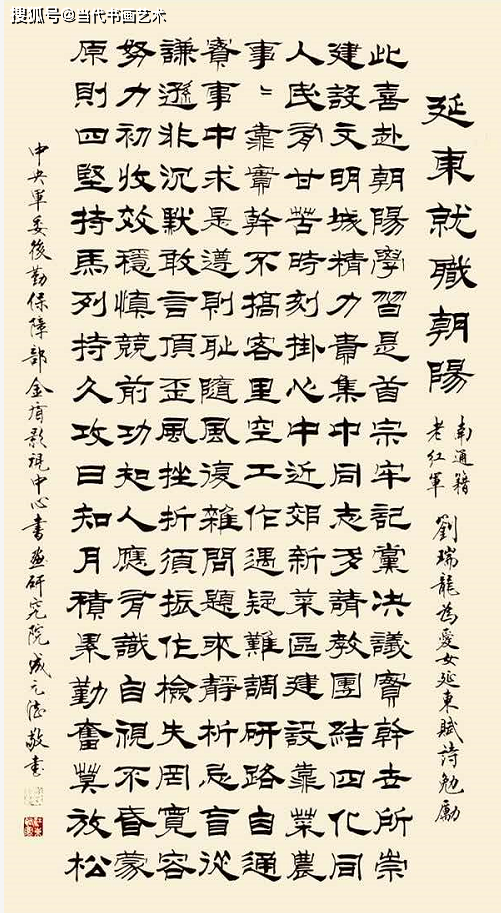 搜狐号@当代书画艺术
延東就職朝陽
南通籍
老红軍
劉瑞龍為愛女延東賦詩勉勵
此喜赴朝陽學習是首宗牢記黨決議實幹去所崇
建設文明城精力集中同志多請教團結四化同
人民有甘苦時刻掛心中近郊新菜區建設靠菜農
事〻靠實幹不搞客里空工作遇疑難調研路自通
實事中求是遵則耻隨風復雜問題來靜析忌盲從
謙遜非沉默敢言頂歪風挫折須振作檢失罔寬容
努力初收效穩慎競前功知人應有識自視不昏蒙
原則四堅持馬列持久攻日知月積累勤奮莫放松
中央軍委後勤保障部金盾影視中心書畫研究院元敬書